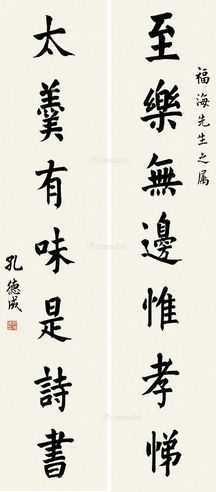 福海先生之属
至樂無邊惟孝悌
太羹有味是詩書
孔德成